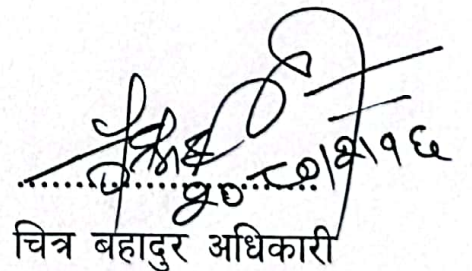 २०८०।२।१६
चित्र बहादुर अधिकारी